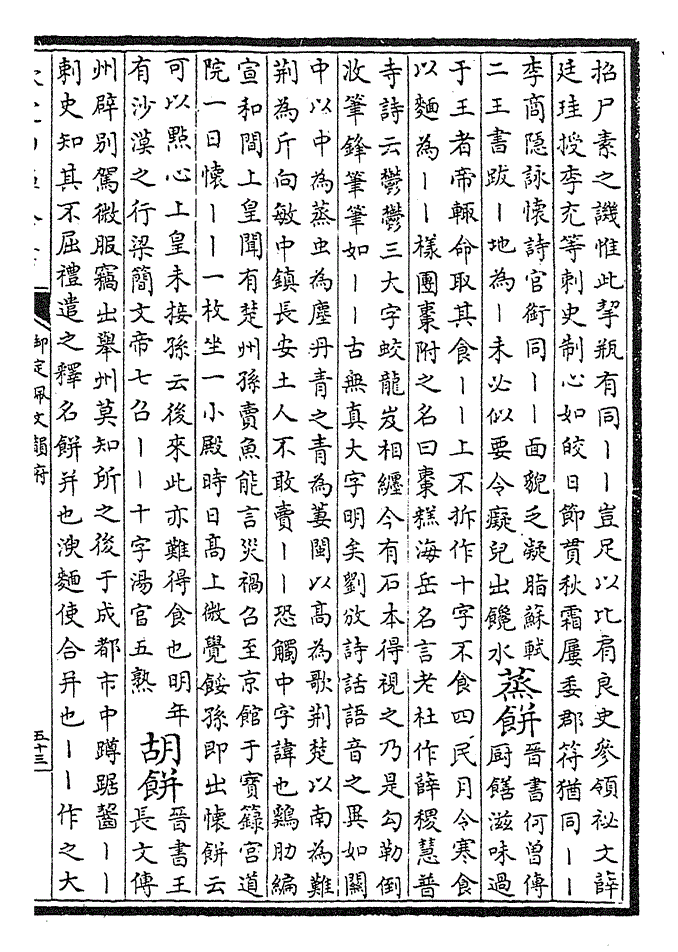 招尸素之譏惟此挈瓶有同丨丨豈足以比肩良史參領祕文薛
廷珪授李充等刺史制心如皎日節貫秋霜屢委郡符猶同丨丨
李商隱詠懷詩官銜同丨丨面貌乏凝脂蘇軾
二王書跋丨地為丨未必似要令癡兒出饞水
蒸餅
晉書何曾傳
厨饍滋味過
于王者帝輒命取其食丨丨上不拆作十字不食四民月令寒食
以麵為丨丨樣團棗附之名曰棗糕海岳名言老杜作薛稷慧普
寺詩云鬱鬱三大字蛟龍岌相纏今有石本得視之乃是勾勒倒
收筆鋒筆筆如丨丨古無真大字明矣劉攽詩話語音之異如關
中以中為蒸虫為塵丹青之青為萋閩以高為歌荆楚以南為難
荆為斤向敏中鎮長安土人不敢賣丨丨恐觸中字諱也鷄肋編
宣和間上皇聞有楚州孫賣魚能言災禍召至京館于寳籙宫道
院一日懷丨丨一枚坐一小殿時日髙上微覺餒孫即出懷餅云
可以點心上皇未接孫云後來此亦難得食也明年
有沙漠之行梁簡文帝七召丨丨十字湯官五熟
胡餅
晉書王
長文傳
州辟别駕微服竊出舉州莫知所之後于成都市中蹲踞齧丨丨
刺史知其不屈禮遣之釋名餅并也溲麵使合并也丨丨作之大
御定佩文韻府
五十三